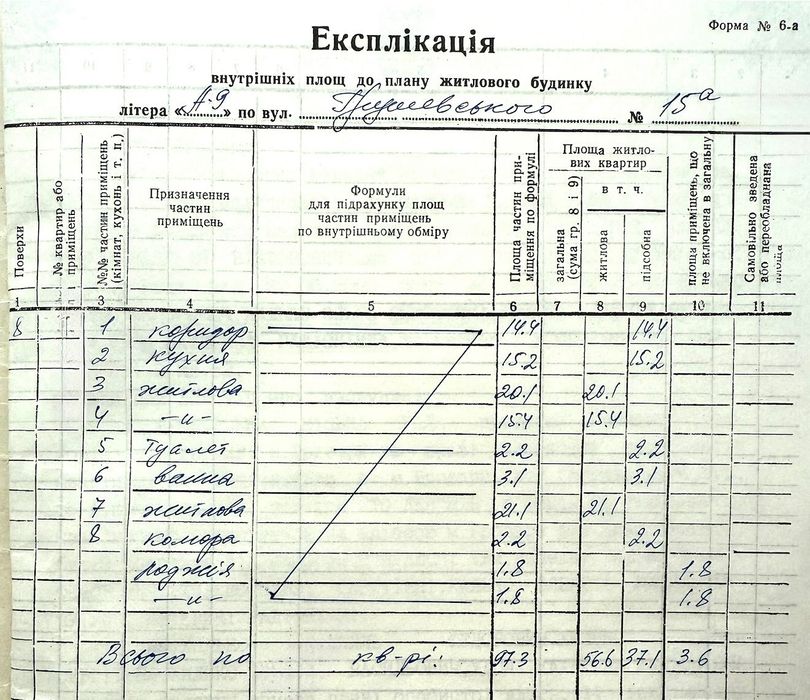 Форма № 6-а
Експлікація
внутрішніх площ до плану житлового будинку
літера « А-9 » по вул. № 15а
Поверхи
№ квартир або приміщень
№№ частин приміщень (кімнат, кухонь і т. п.)
Призначення частин приміщень
Формули для підрахунку площ частин приміщень по внутрішньому обміру
Площа частин приміщення по формулі
Площа житлових квартир
загальна (сума гр. 8 і 9)
в т. ч.
житлова
підсобна
площі приміщень, що не включена в загальну
Самовільно зведена або переобладнана площа
1 2 3 4 5 6 7 8 9 10 11
8 1 коридор 14.4 14.4
2 кухня 15.2 15.2
3 житлова 20.1 20.1
4 —"— 15.4 15.4
5 туалет 2.2 2.2
6 ванна 3.1 3.1
7 житлова 21.1 21.1
8 комора 2.2 2.2
лоджія 1.8 1.8
—"— 1.8 1.8
Всього по кв-рі: 97.3 56.6 37.1 3.6